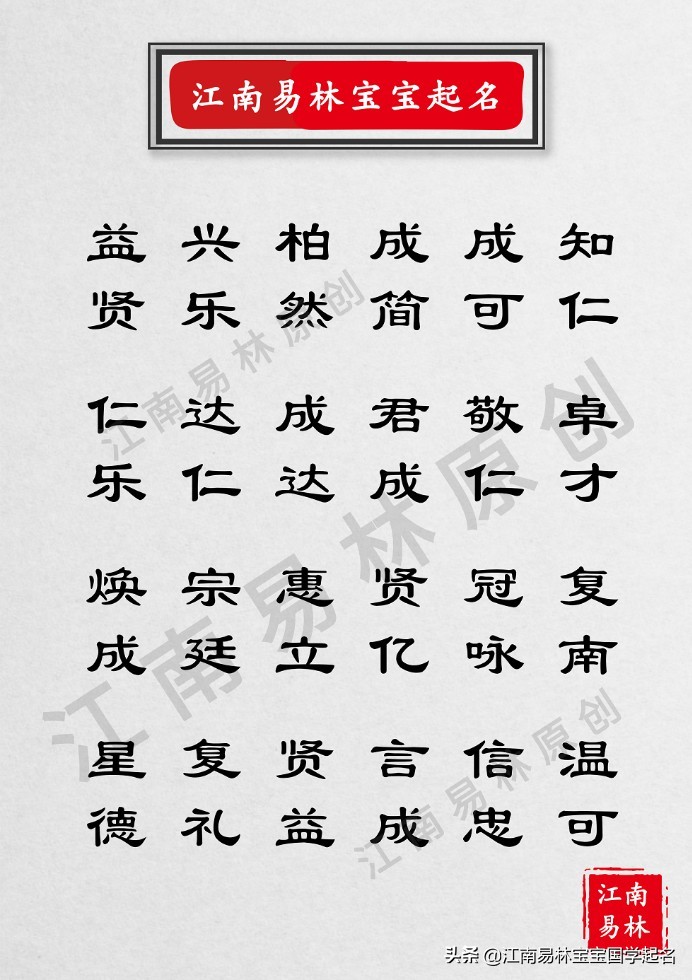 江南易林宝宝起名
益 兴 柏 成 成 知
贤 乐 然 简 可 仁
仁 达 成 君 敬 卓
乐 仁 达 成 仁 才
焕 宗 惠 贤 冠 复
成 廷 立 亿 咏 南
星 复 贤 言 信 温
德 礼 益 成 忠 可
江南易林原创
江南易林原创
江南易林原创
江南
易林
头条 @江南易林宝宝国学起名